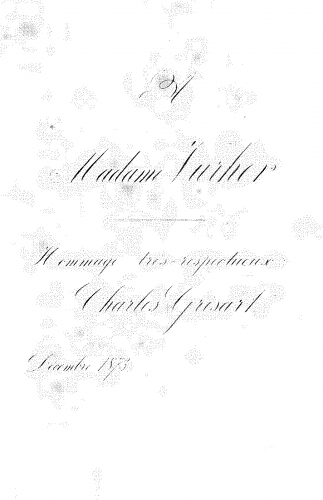 A
Madame Furher
Hommage très-respectueux
Charles Grisart
Décembre 1873